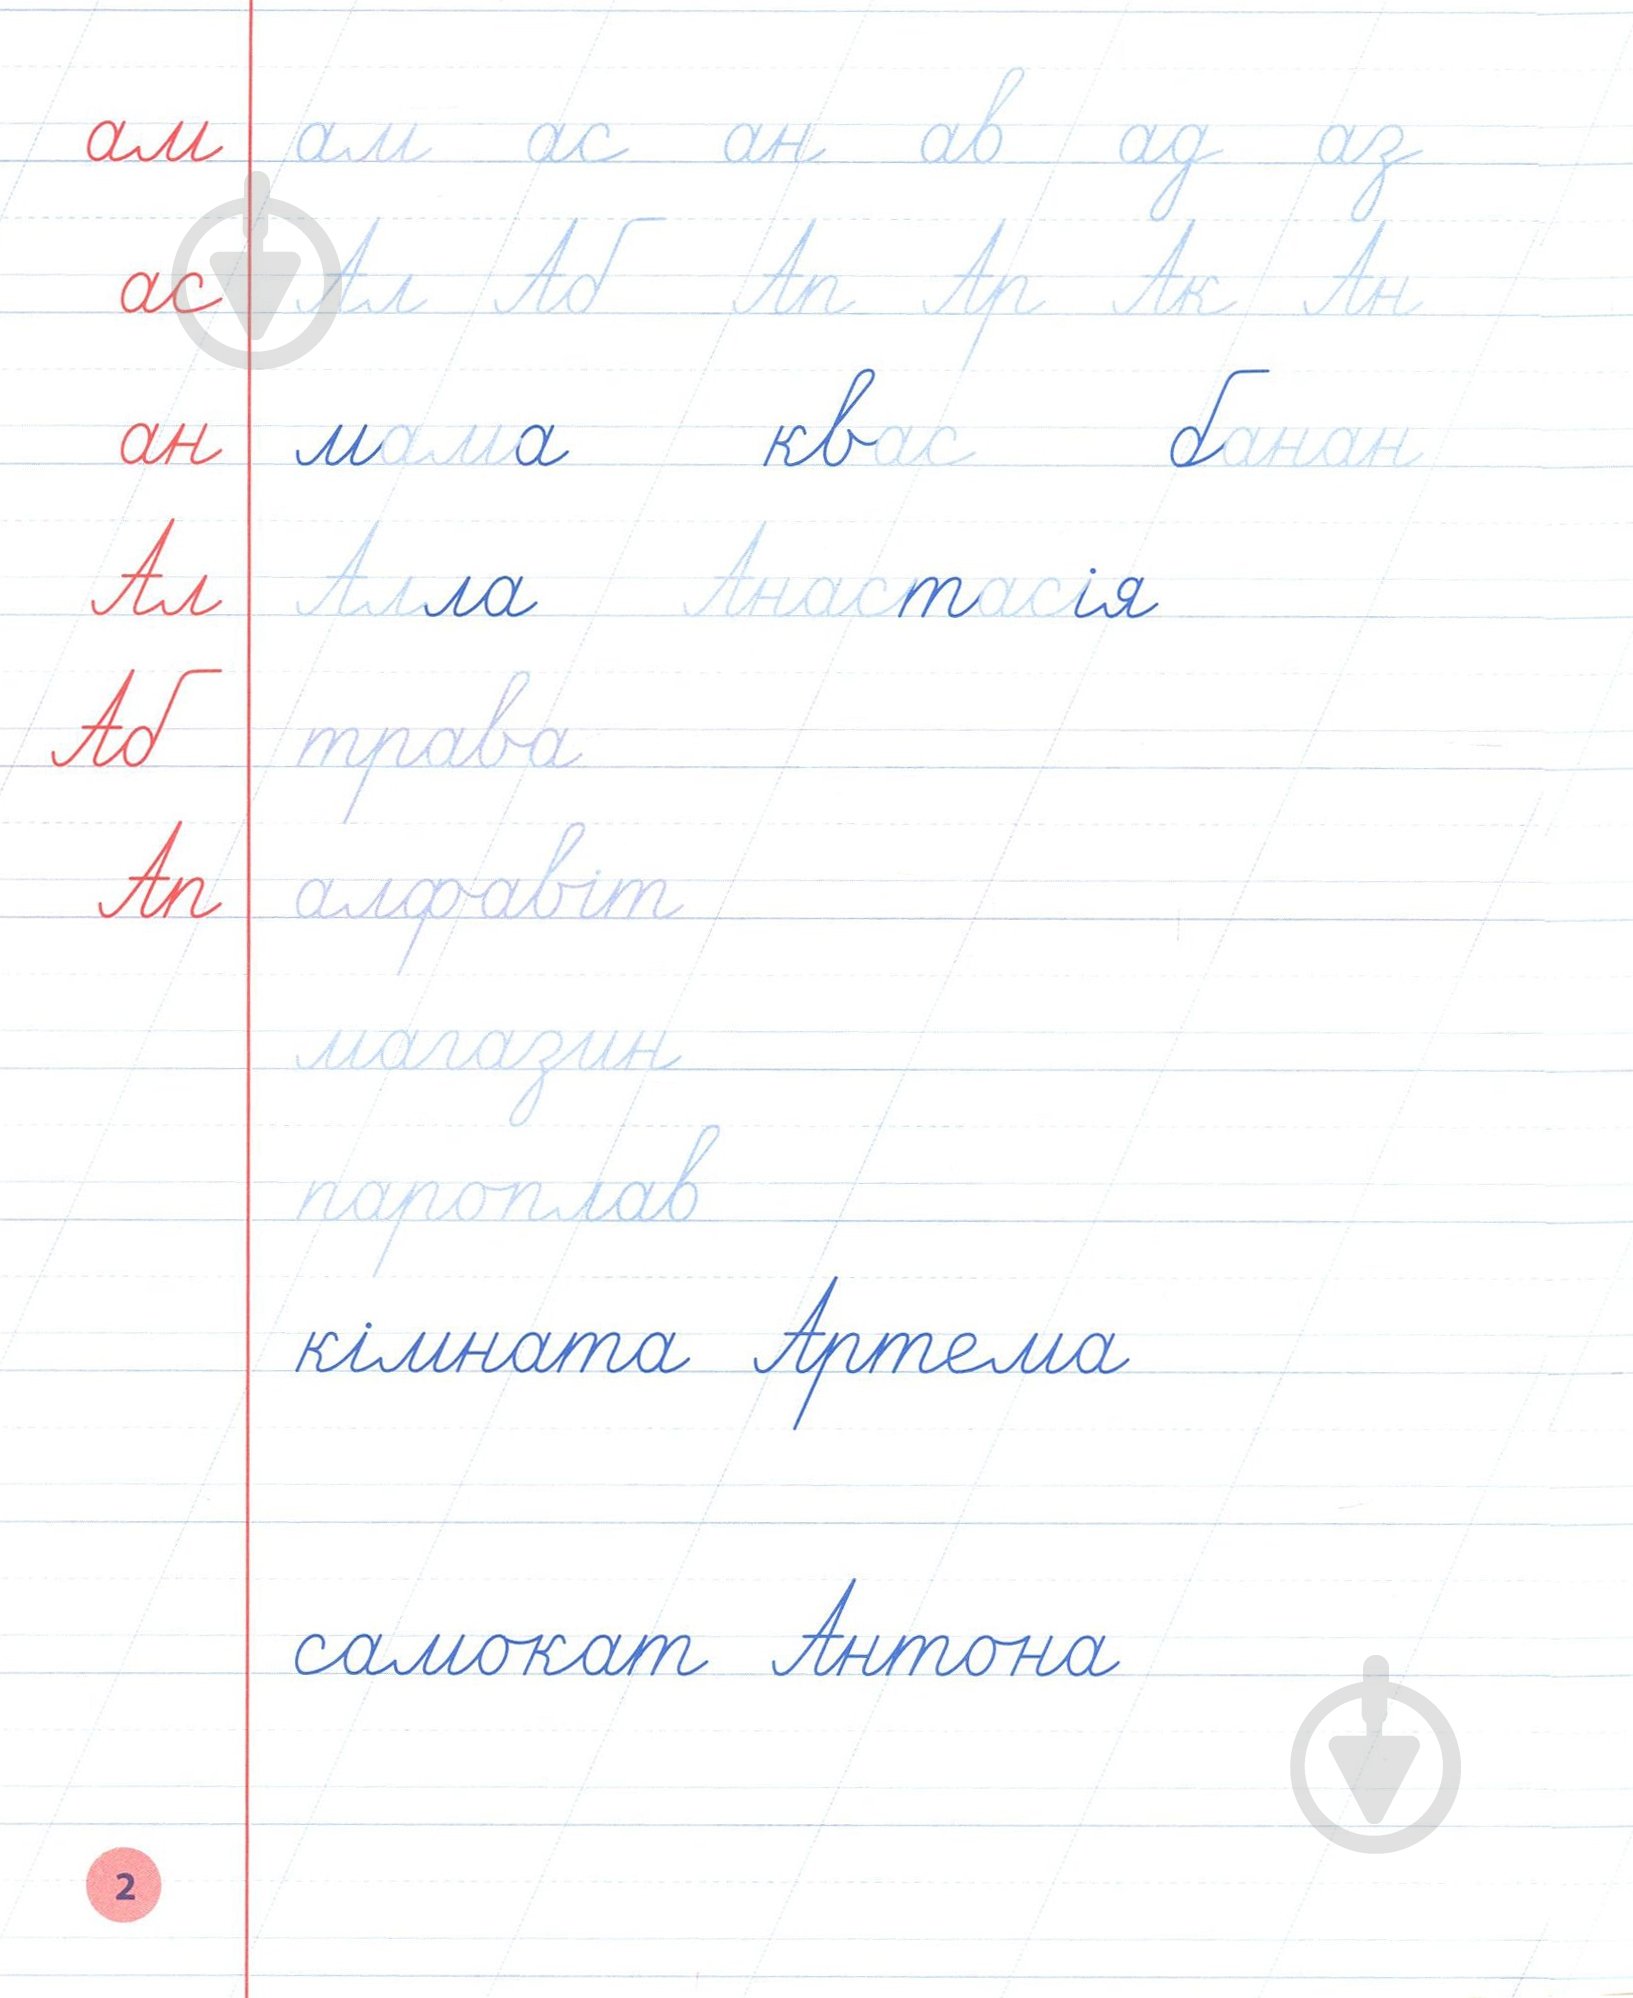 ам ам ас ан ав ад аз
ас Ал Аб Ап Ар Ак Ан
ан мама квас банан
Ал Алла Анастасія
Аб трава
Ап алфавіт
магазин
пароплав
кімната Артема
самокат Антона
2